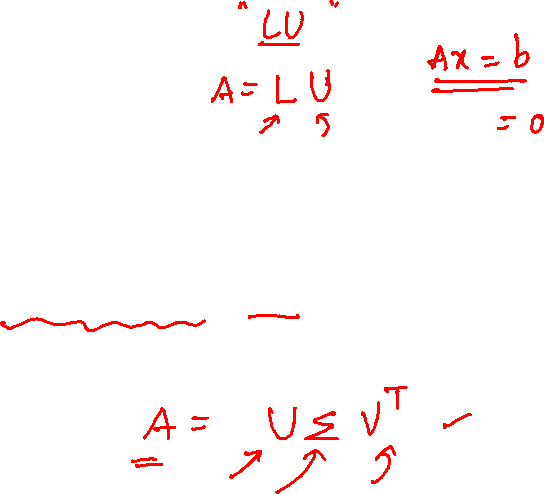 "LU"
A = L U
Ax = b
= 0
A = U Σ Vᵀ